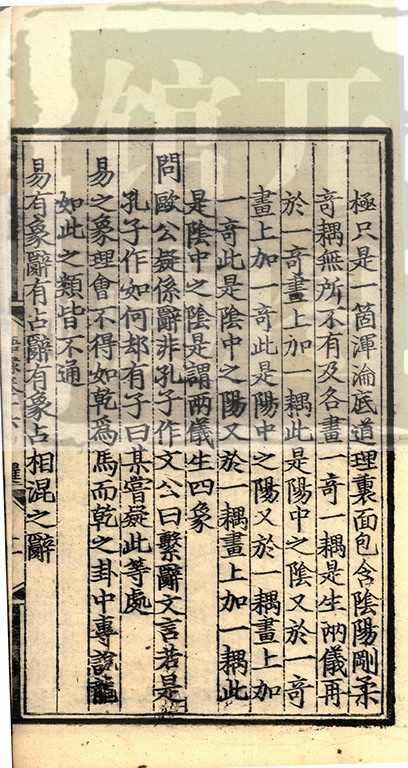 極只是一箇渾淪底道理裏面包含陰陽剛柔
奇耦無所不有及各畫一奇一耦是生兩儀再
於一奇畫上加一耦此是陽中之陰又於一奇
畫上加一奇此是陽中之陽又於一耦畫上加
一奇此是陰中之陽又於一耦畫上加一耦此
是陰中之陰是謂兩儀生四象
問歐公疑係辭非孔子作文公曰繫辭文言若是
孔子作如何却有子曰某嘗疑此等處
易之象理會不得如乾爲馬而乾之卦中專說龍
如此之類皆不通
易有象辭有占辭有象占相混之辭